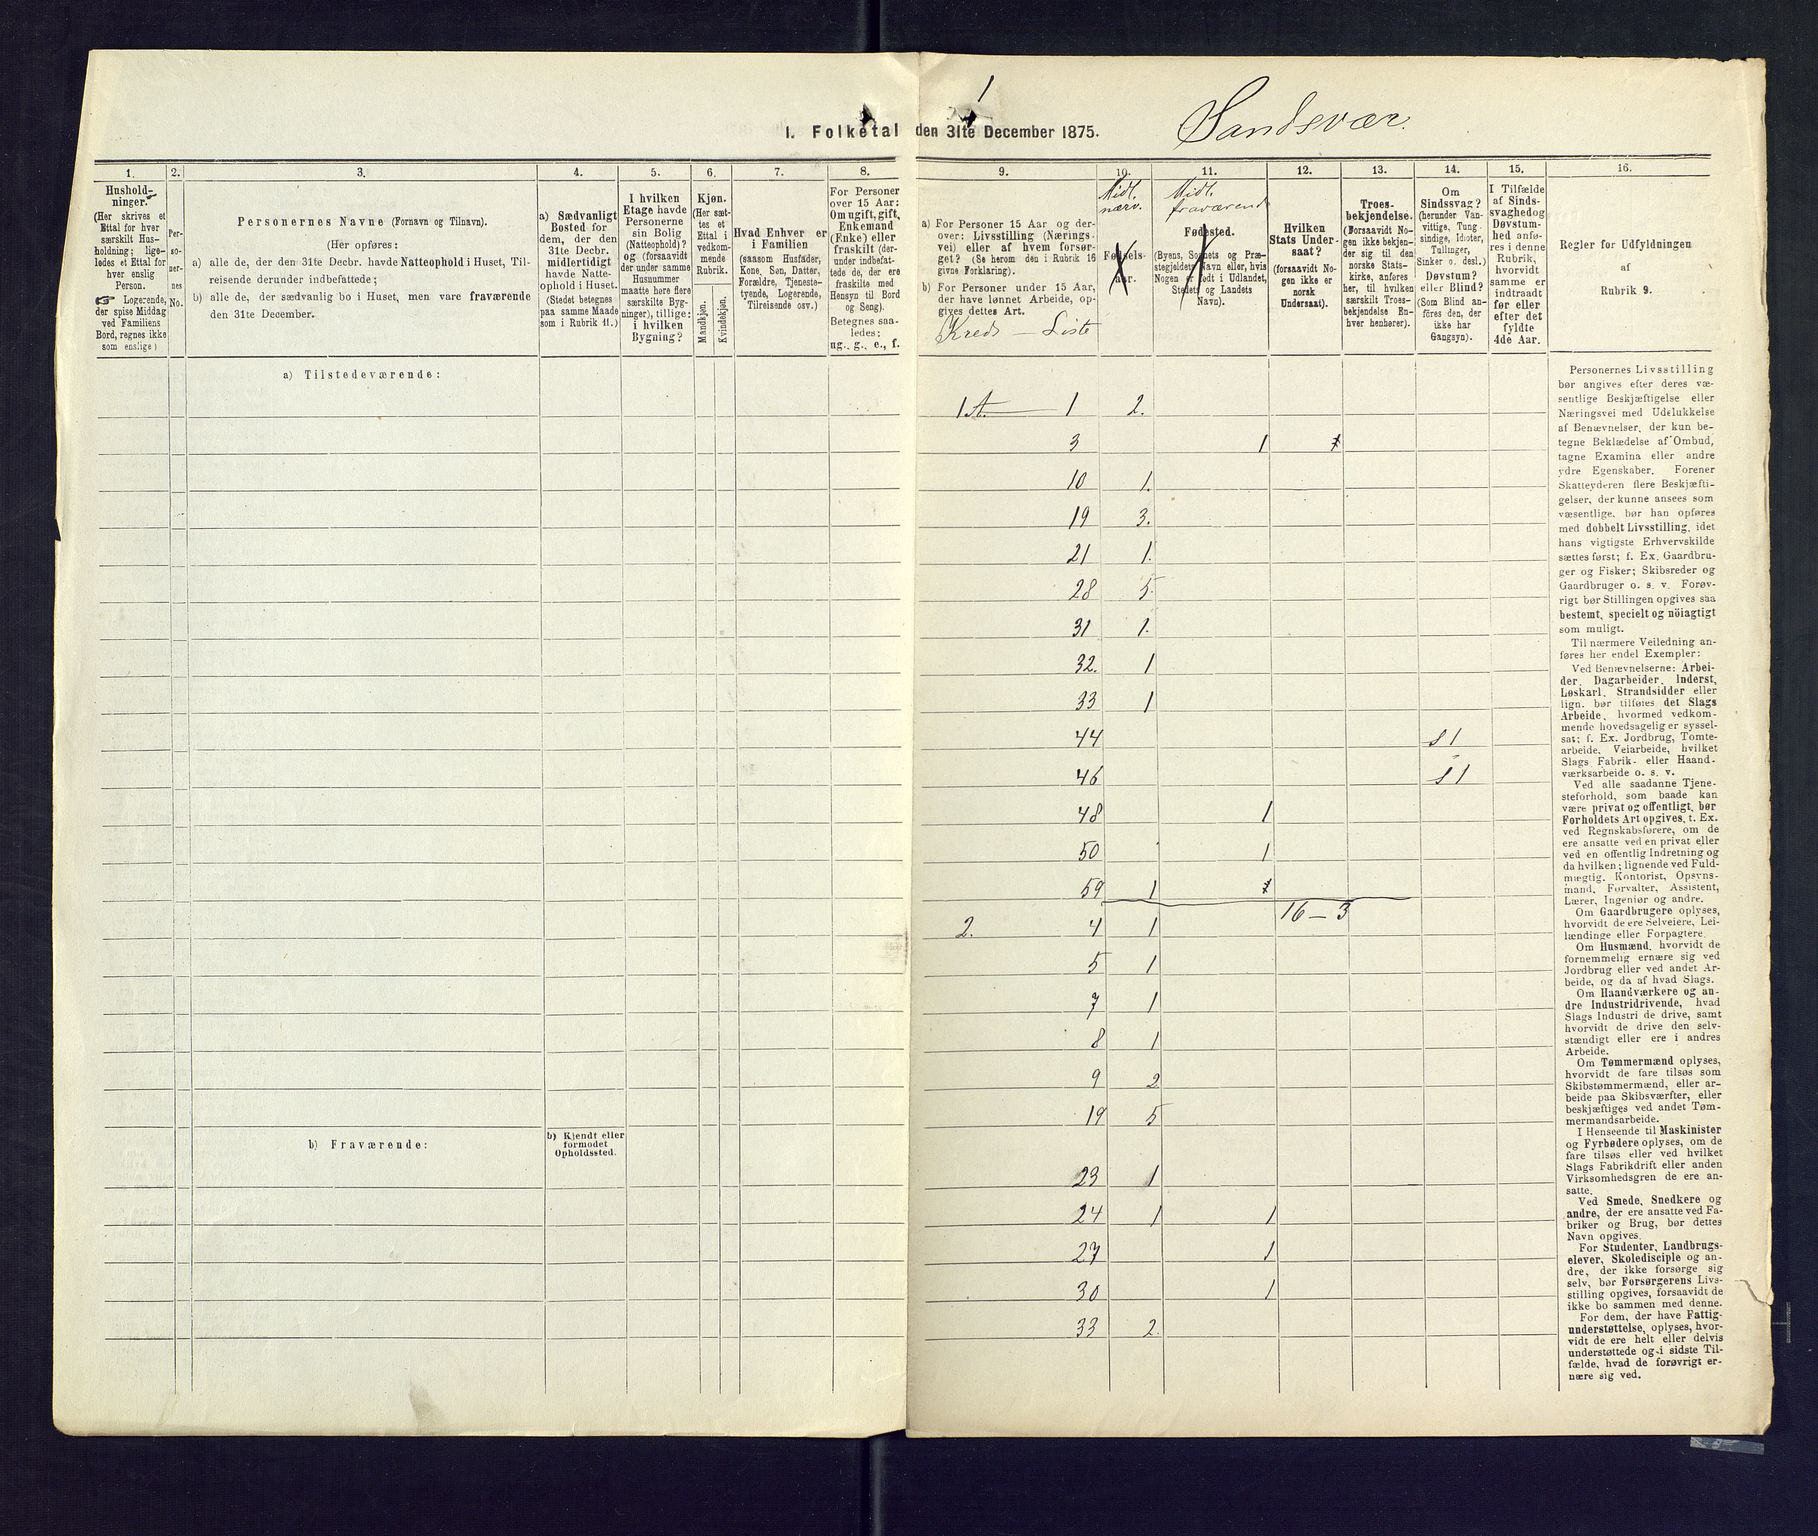 1
I. Folketal den 31te December 1875.
Sandsvær.
1.
Hushold-
ninger.
(Her skrives et
Ettal for hver
særskilt Hus-
holdning; lige-
ledes et Ettal for
hver enslig
Person.
☞ Logerende,
der spise Middag
ved Familiens
Bord, regnes ikke
som enslige)
2.
Per-
so-
ner-
nes
No.
3.
Personernes Navne (Fornavn og Tilnavn).
(Her opføres:
a) alle de, der den 31te Decbr. havde Natteophold i Huset, Til-
reisende derunder indbefattede;
b) alle de, der sædvanlig bo i Huset, men vare fraværende
den 31te December.
4.
a) Sædvanligt
Bosted for
dem, der den
31te Decbr.
midlertidigt
havde Natte-
ophold i Huset.
(Stedet betegnes
paa samme Maade
som i Rubrik 11.)
5.
I hvilken
Etage havde
Personerne
sin Bolig
(Natteophold)?
og (forsaavidt
der under samme
Husnummer
maatte høre flere
særskilte Byg-
ninger), tillige:
i hvilken
Bygning?
6.
Kjøn.
(Her sæt-
tes et
Ettal i
vedkom-
mende
Rubrik.
Mandkjøn.
Kvindekjøn.
7.
Hvad Enhver er
i Familien
(saasom Husfader,
Kone, Søn, Datter,
Forældre, Tjeneste-
tyende, Logerende,
Tilreisende osv.)
8.
For Personer
over 15 Aar:
Om ugift, gift,
Enkemand
(Enke) eller
fraskilt (der-
under indbefat-
tede de, der ere
fraskilte med
Hensyn til Bord
og Seng).
Betegnes saa-
ledes:
ug., g., e., f.
9.
a) For Personer 15 Aar og der-
over: Livsstilling (Nærings-
vei) eller af hvem forsør-
get? (Se herom den i Rubrik 16
givne Forklaring).
b) For Personer under 15 Aar,
der have lønnet Arbeide, op-
gives dettes Art.
Kreds — Liste
10.
Midl.
nærv.
Fødsels-
aar.
11.
Midl.
fraværende
Fødested.
(Byens, Sognets og Præ-
stegjeldets Navn eller, hvis
Nogen er født i Udlandet,
Stedets og Landets
Navn).
12.
Hvilken
Stats Under-
saat?
(forsaavidt No-
gen ikke er
norsk
Undersaat).
13.
Troes-
bekjendelse.
(Forsaavidt No-
gen ikke bekjen-
der sig til den
norske Stats-
kirke, anføres
her, til hvilken
særskilt Troes-
bekjendelse En-
hver henhører).
14.
Om
Sindssvag?
(herunder Van-
vittige, Tung-
sindige, Idioter,
Tullinger,
Sinker o. desl.)
Døvstum?
eller Blind?
(Som Blind an-
føres den, der
ikke har
Gangsyn).
15.
I Tilfælde
af Sinds-
svaghedog
Døvstum-
hed anfø-
res i denne
Rubrik,
hvorvidt
samme er
indtraadt
før eller
efter det
fyldte
4de Aar.
16.
Regler for Udfyldningen
af
Rubrik 9.
a) Tilstedeværende:
1 A. — 1 2.
3 1
10 1.
19 3.
21 1.
28 5.
31 1.
32. 1
33 1
44 S 1
46 S 1
48 1
50 1
59 1
16 — 3
2. 4 1
5 1
7 1
8 1
9 2
19 5
b) Fraværende:
b) Kjendt eller
formodet
Opholdssted.
23 1
24 1 1
27 1
30 1
33 2
Personernes Livsstilling
bør angives efter deres væ-
sentlige Beskjæftigelse eller
Næringsvei med Udelukkelse
af Benævnelser, der kun be-
tegne Beklædelse af Ombud,
tagne Examina eller andre
ydre Egenskaber. Forener
Skatteyderen flere Beskjæfti-
gelser, der kunne ansees som
væsentlige, bør han opføres
med dobbelt Livsstilling, idet
hans vigtigste Erhvervskilde
sættes først; f. Ex. Gaardbru-
ger og Fisker; Skibsreder og
Gaardbruger o. s. v. Forøv-
rigt bør Stillingen opgives saa
bestemt, specielt og nöiagtigt
som muligt.
Til nærmere Veiledning an-
føres her endel Exempler:
Ved Benævnelserne: Arbei-
der, Dagarbeider, Inderst,
Løskarl, Strandsidder eller
lign. bør tilføies det Slags
Arbeide, hvormed vedkom-
mende hovedsagelig er syssel-
sat; f. Ex. Jordbrug, Tomte-
arbeide, Veiarbeide, hvilket
Slags Fabrik- eller Haand-
værksarbeide o. s. v.
Ved alle saadanne Tjene-
steforhold, som baade kan
være privat og offentligt, bør
Forholdets Art opgives, t. Ex.
ved Regnskabsførere, om de
ere ansatte ved en privat eller
ved en offentlig Indretning og
da hvilken; lignende ved Fuld-
mægtig, Kontorist, Opsyns-
mand, Forvalter, Assistent,
Lærer, Ingeniør og andre.
Om Gaardbrugere oplyses,
hvorvidt de ere Selveiere, Lei-
lændinge eller Forpagtere.
Om Husmænd, hvorvidt de
fornemmelig ernære sig ved
Jordbrug eller ved andet Ar-
beide, og da af hvad Slags.
Om Haandværkere og an-
dre Industridrivende, hvad
Slags Industri de drive, samt
hvorvidt de drive den selv-
stændigt eller ere i andres
Arbeide.
Om Tømmermænd oplyses,
hvorvidt de fare tilsøs som
Skibstømmermænd, eller ar-
beide paa Skibsværfter, eller
beskjæftiges ved andet Tøm-
mermandsarbeide.
I Henseende til Maskinister
og Fyrbødere oplyses, om de
fare tilsøs eller ved hvilket
Slags Fabrikdrift eller anden
Virksomhedsgren de ere an-
satte.
Ved Smede, Snedkere og
andre, der ere ansatte ved Fa-
briker og Brug, bør dettes
Navn opgives.
For Studenter, Landbrugs-
elever, Skoledisciple og an-
dre, der ikke forsørge sig
selv, bør Forsørgerens Livs-
stilling opgives, forsaavidt de
ikke bo sammen med denne.
For dem, der have Fattig-
understøttelse, oplyses, hvor-
vidt de ere helt eller delvis
understøttede og i sidste Til-
fælde, hvad de forøvrigt er-
nære sig ved.